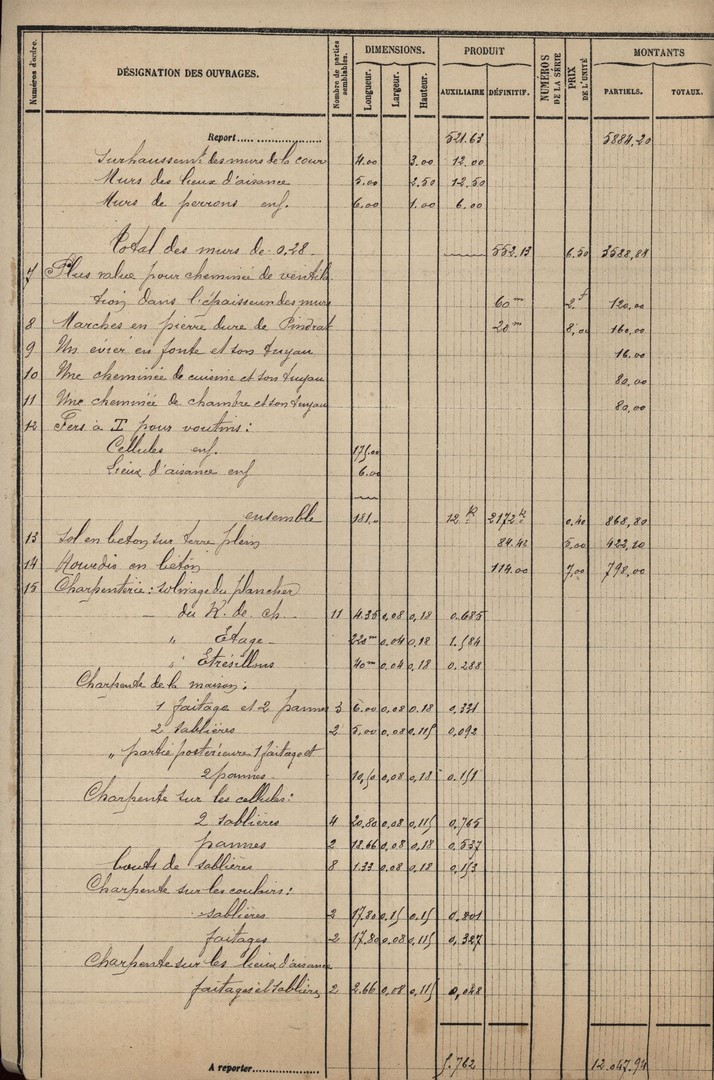 Numéros d'ordre. DÉSIGNATION DES OUVRAGES. Nombre de parties semblables. DIMENSIONS. Longueur. Largeur. Hauteur. PRODUIT AUXILIAIRE DÉFINITIF. NUMÉROS DE LA SÉRIE PRIX DE L'UNITÉ MONTANTS PARTIELS. TOTAUX.
Report 521.63 5884,20
Surhaussemt des murs de la cour 4.00 3.00 12.00
Murs des lieux d'aisance 5.00 2.50 12.50
Murs de perrons enf. 6.00 1.00 6.00
Total des murs de 0,28 552.13 6.50 3588,84
7 Plus value pour cheminée de ventila
tion dans l'épaisseur des murs 60m 2f 120,00
8 Marches en pierre dure de 20m 8,00 160,00
9 Un évier en fonte et son tuyau 16.00
10 Une cheminée de cuisine et son tuyau 80.00
11 Une cheminée de chambre et son tuyau 80,00
12 Fers à I pour voutins :
Cellules enf. 175.00
Lieux d'aisance enf 6.00
ensemble 181. 12 K 2172 K 0.40 868,80
13 Sol en béton sur terre plein 84.42 5.00 422,10
14 Hourdis en béton 114.00 7,00 798,00
15 Charpenterie : solivage du plancher
du R. de ch. 11 4.35 0,08 0,18 0.685
" Etage 220m 0.04 0,18 1.584
" Etrésillons 40m 0.04 0,18 0.288
Charpente de la maison :
1 faitage et 2 pannes 3 6.00 0,08 0.18 0.321
2 sablières 2 5.00 0,08 0.115 0,092
" partie postérieure 1 faitage et
2 pannes 10,50 0,08 0,18 0.151
Charpente sur les cellules :
2 sablières 4 20.80 0,08 0,115 0,765
pannes 2 18.66 0,08 0,18 0.537
bouts de sablières 8 1.33 0,08 0,18 0,153
Charpente sur les couloirs :
sablières 2 17.80 0,15 0,15 0.801
faitages 2 17.80 0.08 0,115 0,327
Charpente sur les lieux d'aisance
faitages et sablières 2 2.66 0,08 0,115 0,048
A reporter 5.762 12.047.94